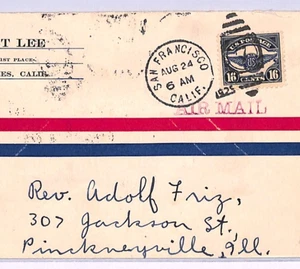 T LEE
RST PLACE,
ES, CALIF.
SAN FRANCISCO
AUG 24
6 AM
CALIF.
1925
U.S. POSTAGE
16 CENTS 16
AIR MAIL
Rev. Adolf Friz,
307 Jackson St.,
Pinckneyville, Ill.